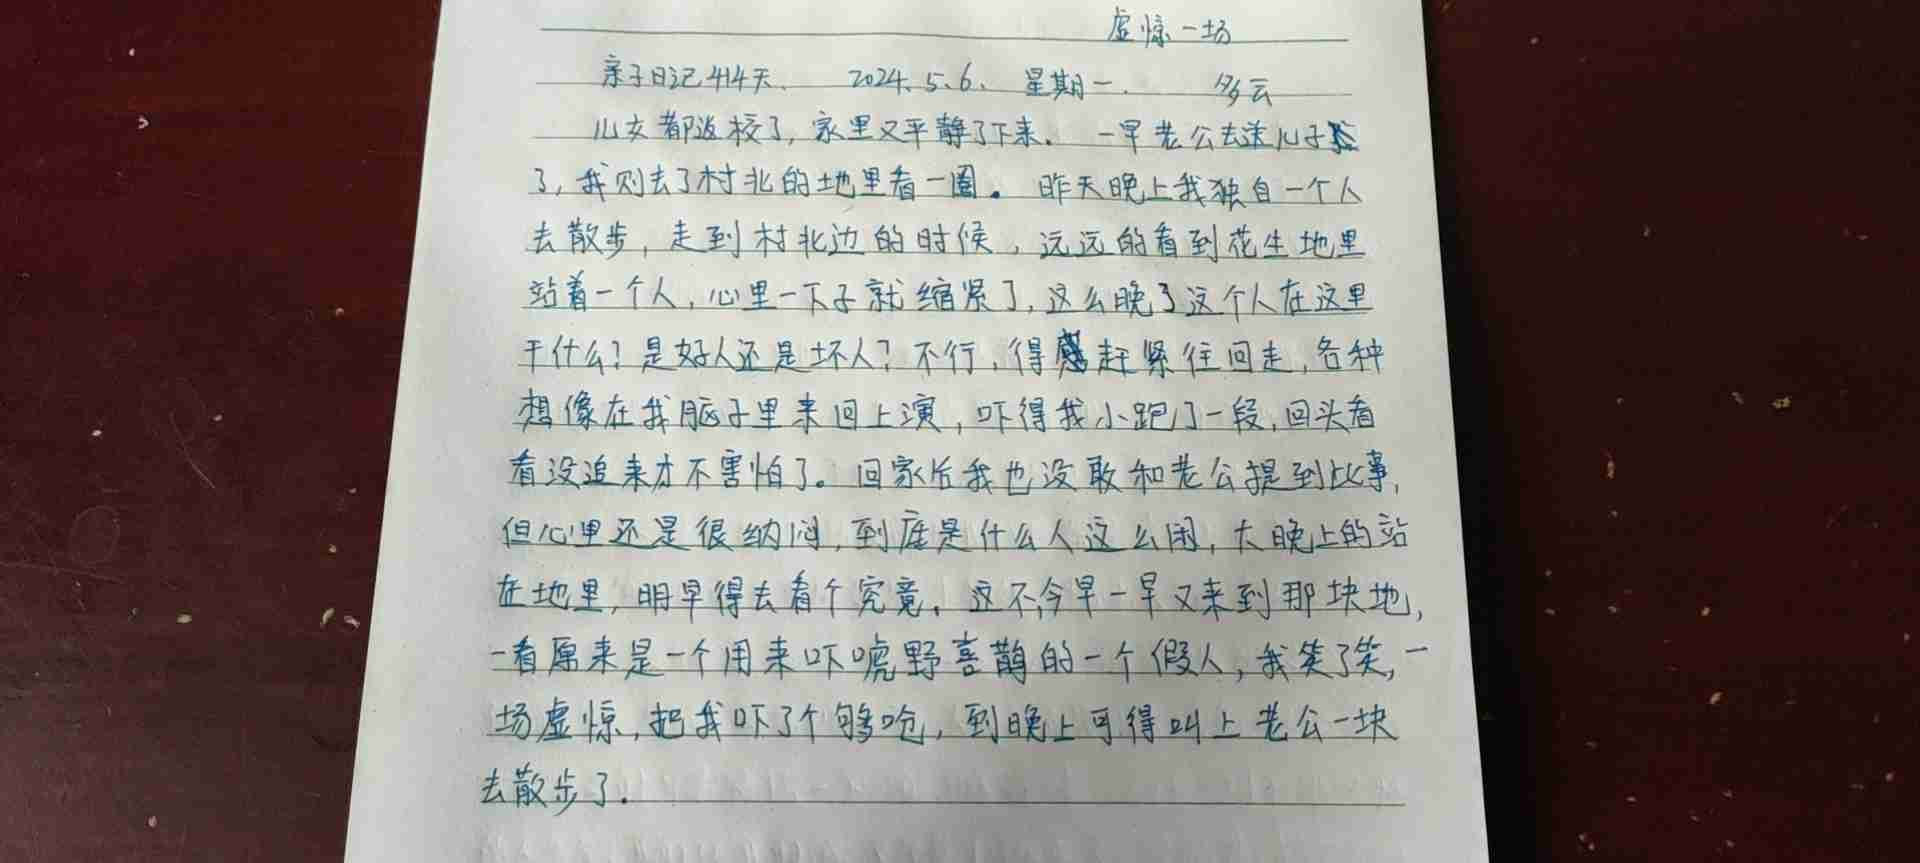 虚惊一场
亲子日记414天. 2024.5.6. 星期一. 多云
儿女都返校了,家里又平静了下来. 一早老公去送儿子
了,我则去了村北的地里看一圈。昨天晚上我独自一个人
去散步,走到村北边的时候,远远的看到花生地里
站着一个人,心里一下子就缩紧了,这么晚了这个人在这里
干什么?是好人还是坏人?不行,得赶紧往回走,各种
想像在我脑子里来回上演,吓得我小跑了一段,回头看
看没追来才不害怕了。回家后我也没敢和老公提到此事,
但心里还是很纳闷,到底是什么人这么闲,大晚上的站
在地里,明早得去看个究竟. 这不今早一早又来到那块地,
一看原来是一个用来吓唬野喜鹊的一个假人,我笑了笑,一
场虚惊,把我吓了个够呛,到晚上可得叫上老公一块
去散步了.